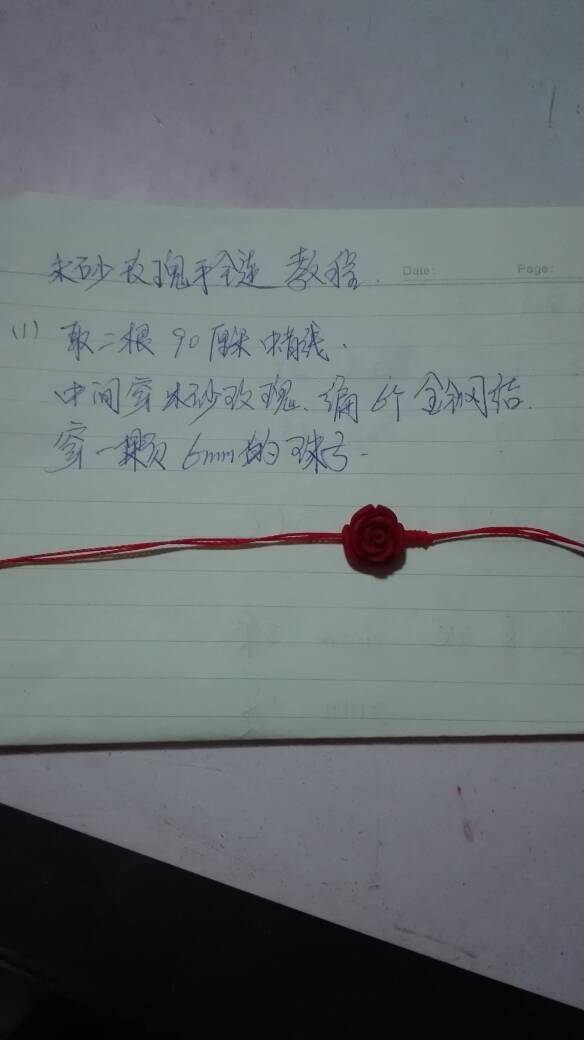 朱砂玫瑰手链 教程.
Date: Page:
(1) 取二根 90厘米 蜡线.
中间穿朱砂玫瑰. 编 6个金刚结.
穿一颗 6mm的珠子.